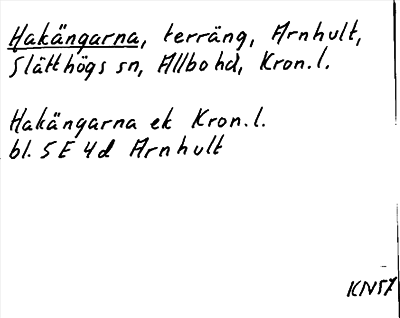 Hakängarna, terräng, Arnhult,
Slätthögs sn, Allbo hd, Kron.l.
Hakängarna ek Kron.l.
bl. 5E 4d Arnhult
KN57